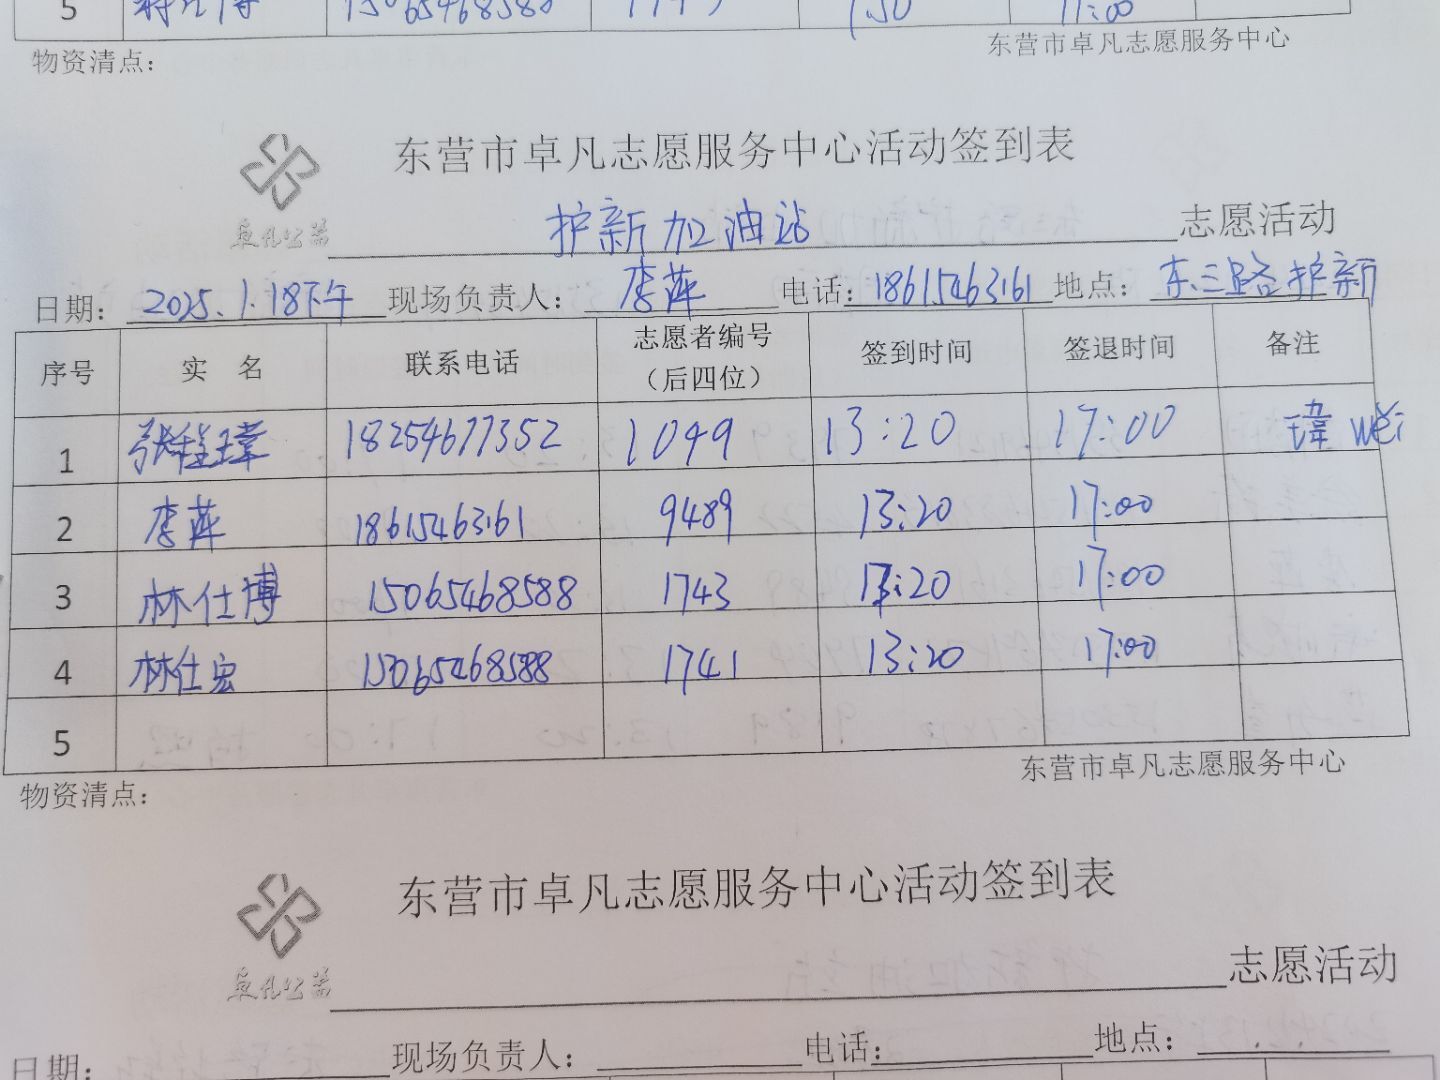 5 15065468588 1743 1:30 17:00
物资清点： 东营市卓凡志愿服务中心
东营市卓凡志愿服务中心活动签到表
卓凡公益
护新加油站 志愿活动
日期： 2025.1.18下午 现场负责人： 李萍 电话： 18615463161 地点： 东三路护新
序号 实 名 联系电话 志愿者编号（后四位） 签到时间 签退时间 备注
1 张桂瑋 18254677352 1049 13:20 17:00 瑋 wěi
2 李萍 18615463161 9489 13:20 17:00
3 林仕博 15065468588 1743 13:20 17:00
4 林仕宏 15065468588 1741 13:20 17:00
5
物资清点： 东营市卓凡志愿服务中心
东营市卓凡志愿服务中心活动签到表
卓凡公益
志愿活动
日期： 现场负责人： 电话： 地点：